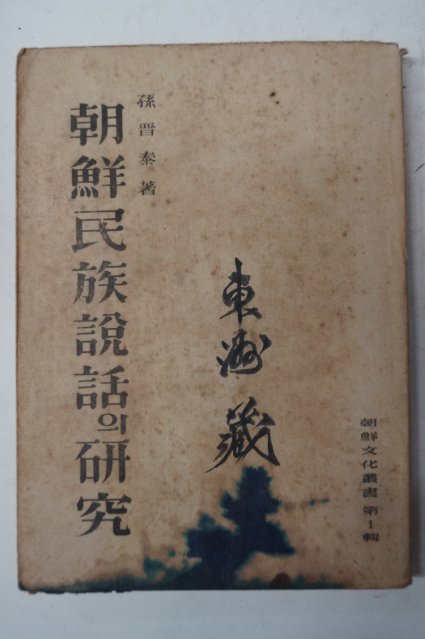 孫晋泰著
朝鮮民族說話의硏究
東洲藏
朝鮮文化叢書 第1輯